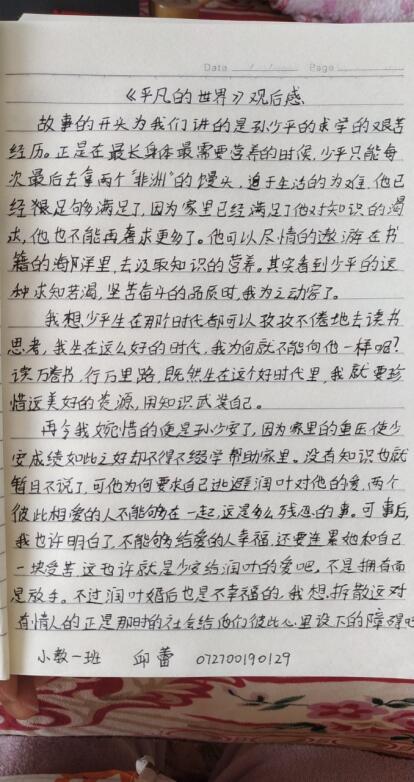 Date / / Page
《平凡的世界》观后感
故事的开头为我们讲的是孙少平的求学的艰苦
经历。正是在最长身体最需要营养的时候,少平只能每
次最后去拿两个"非洲"的馒头,迫于生活的为难,他已
经很足够满足了,因为家里已经满足了他对知识的渴
求,他也不能再奢求更多了。他可以尽情的遨游在书
籍的海洋里,去汲取知识的营养。其实看到少平的这
种求知若渴,坚苦奋斗的品质时,我为之动容了。
我想少平生在那个时代都可以孜孜不倦地去读书
思考,我生在这么好的时代,我为何就不能向他一样呢?
读万卷书,行万里路,既然生在这个好时代里,我就要珍
惜这美好的资源,用知识武装自己。
再令我惋惜的便是孙少安了,因为家里的重压使少
安成绩如此之好却不得不缀学帮助家里。没有知识也就
暂且不说了,可他为何要求自己逃避润叶对他的爱,两个
彼此相爱的人不能够在一起,这是多么残忍的事。可事后,
我也许明白了,不能够给爱的人幸福,还要连累她和自己
一块受苦,这也许就是少安给润叶的爱吧,不是拥有而
是放手。不过润叶婚后也是不幸福的,我想,拆散这对
有情人的正是那时的社会给他们彼此心里设下的障碍吧
小教一班 邱蕾 072700190129